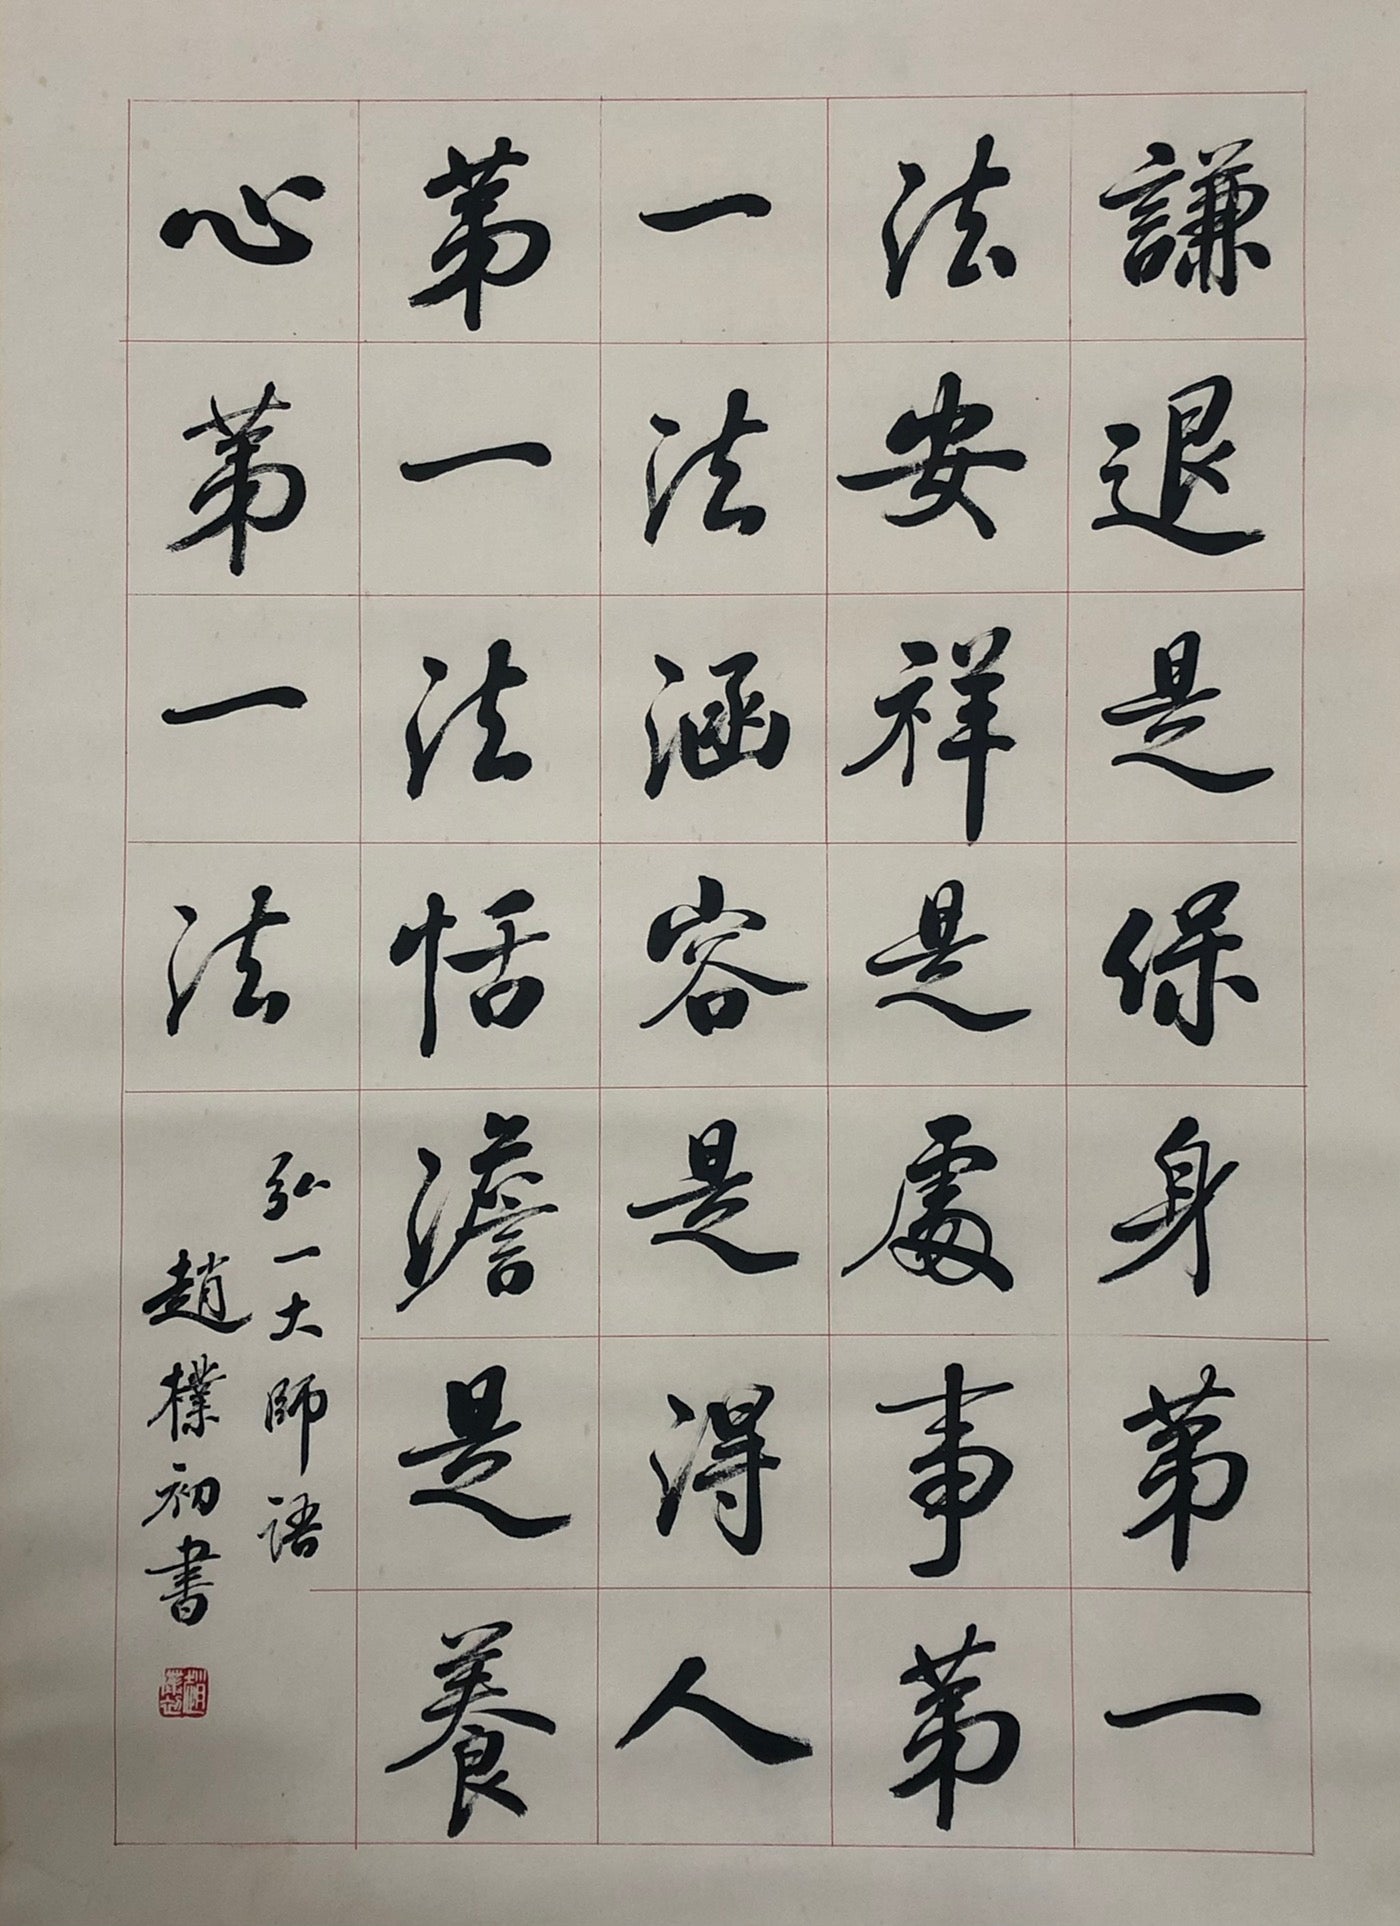 謙退是保身第一
法安祥是處事第
一法涵容是得人
第一法恬澹是養
心第一法
弘一大師語
趙樸初書
趙樸初